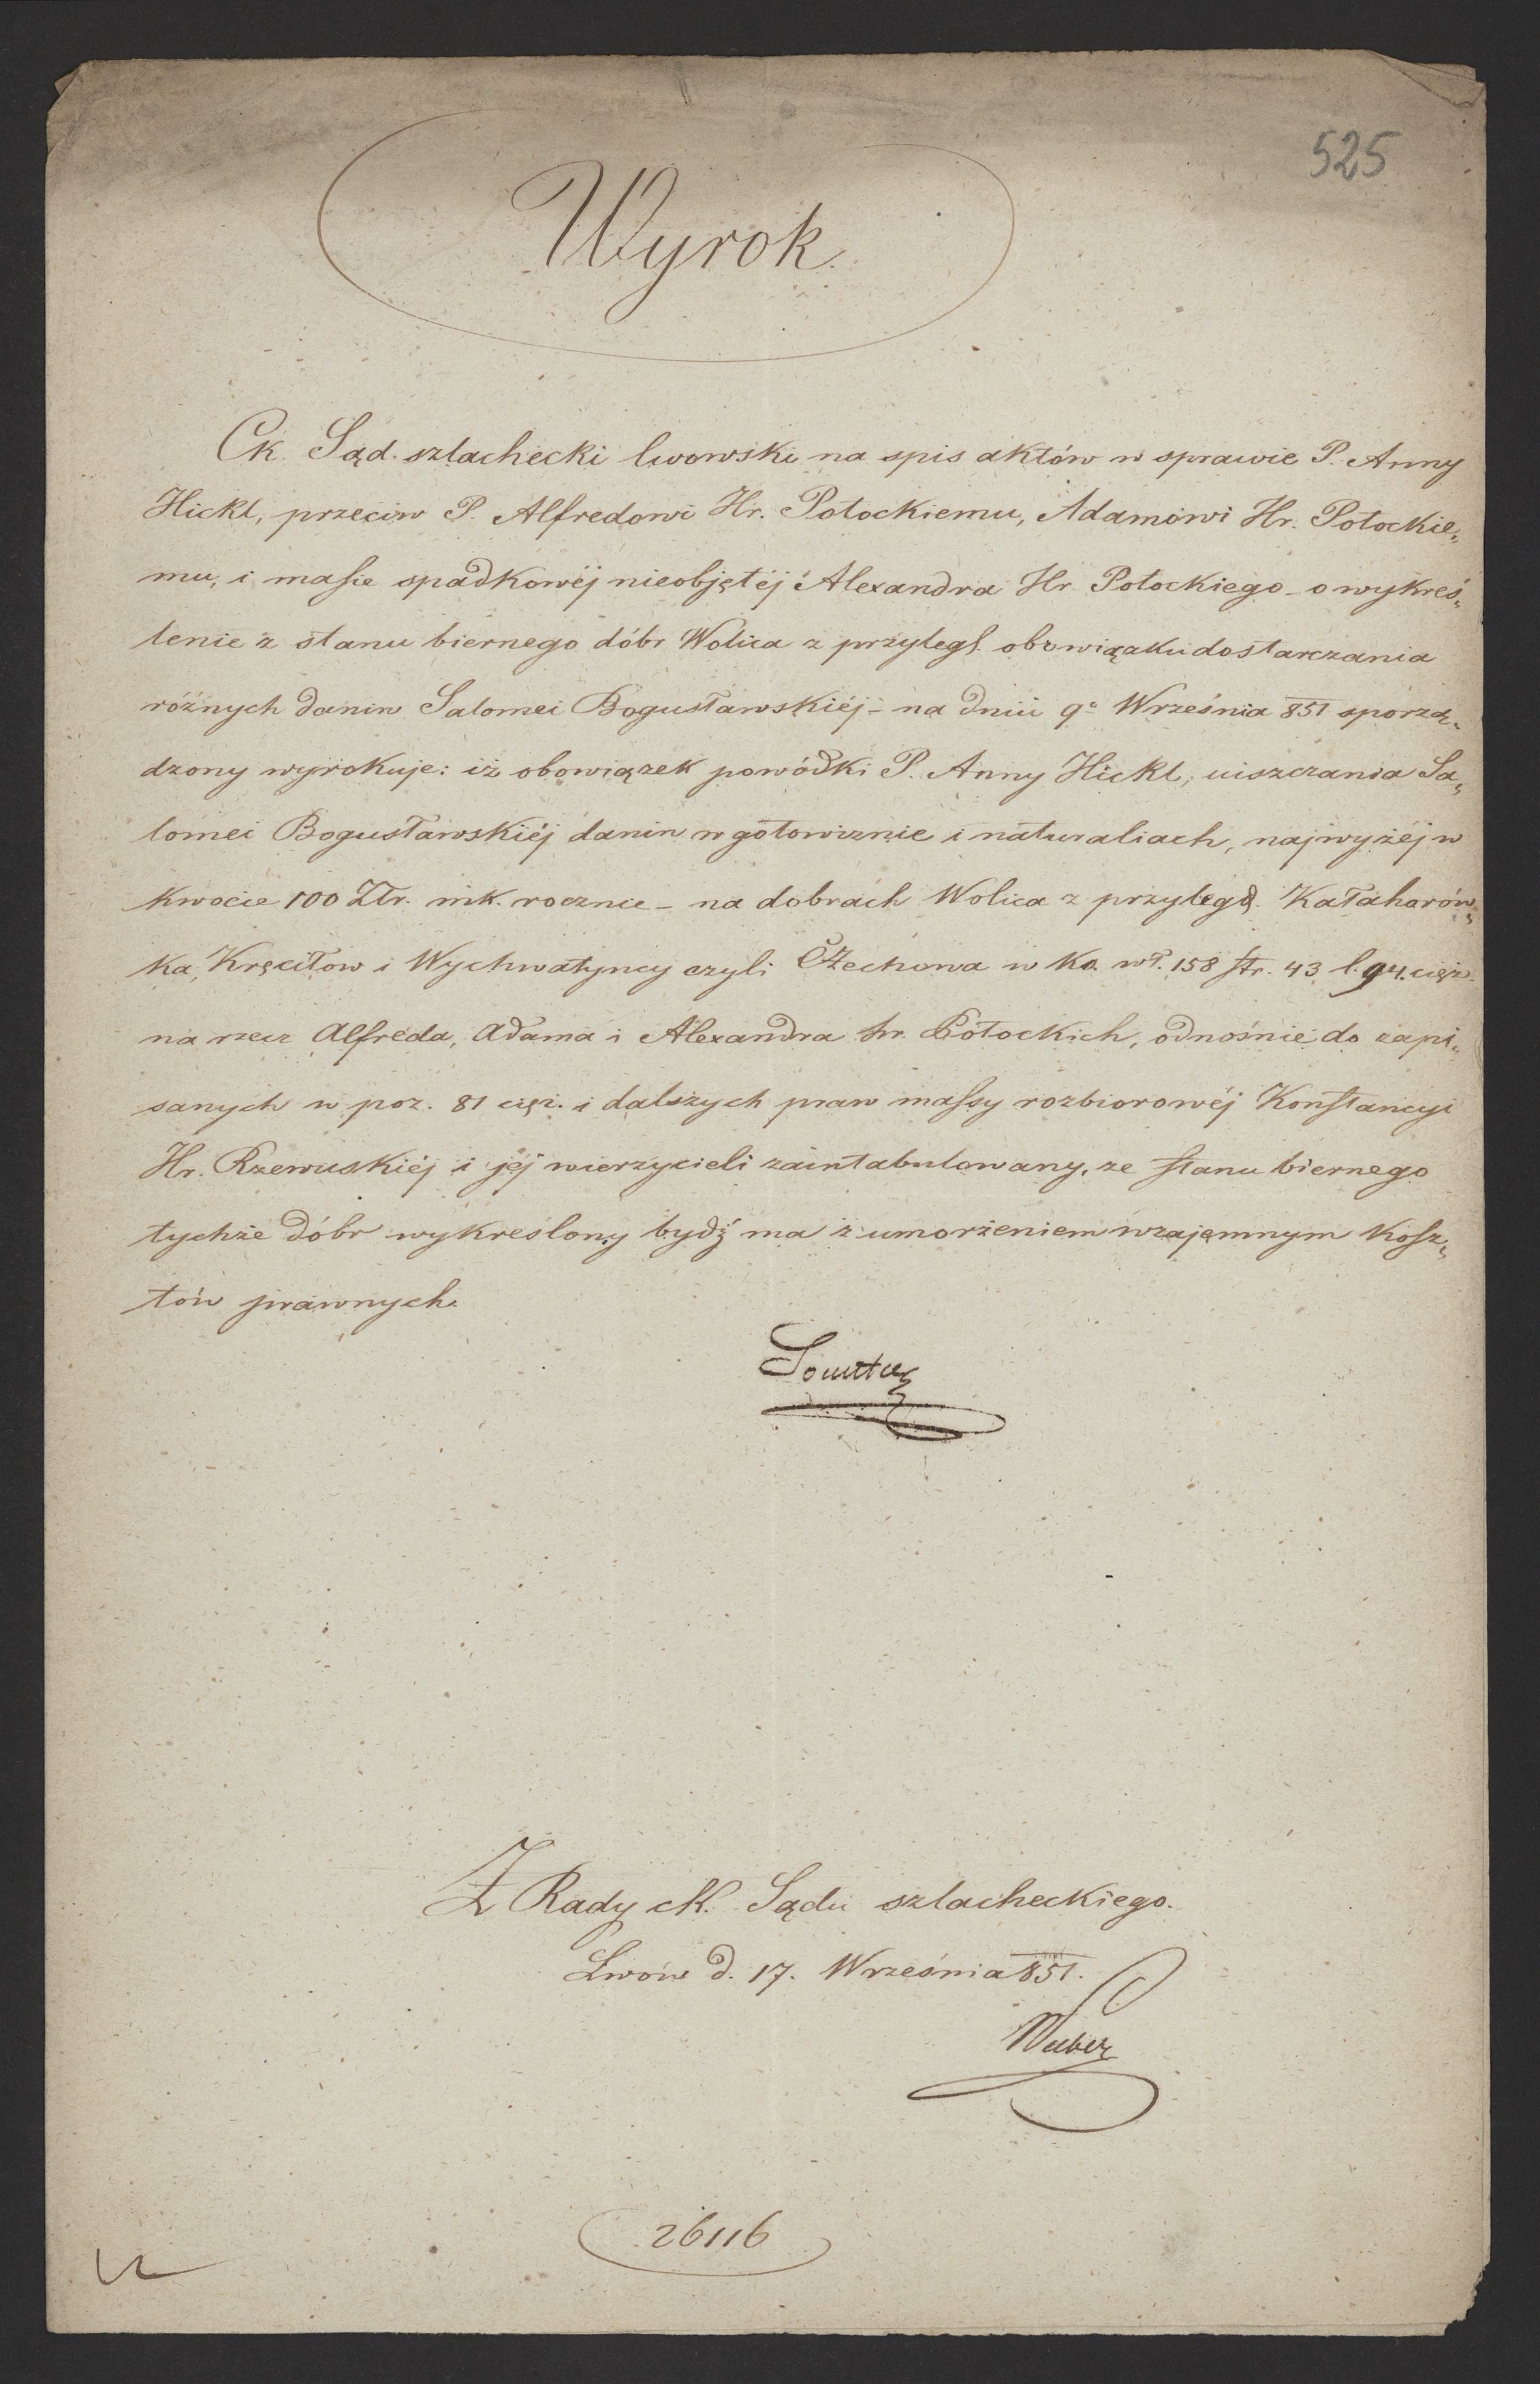 525
Wyrok.
Ck. Sąd. szlachecki lwowski na spis aktów w sprawie P. Anny
Hickl, przeciw P. Alfredowi Hr. Potockiemu, Adamowi Hr. Potockie„
mu, i masie spadkowéj nieobjętéj Alexandra Hr. Potockiego – o wykreś„
lenie z stanu biernego dóbr Wolica z przyległ. obowiązku dostarczania
różnych danin Salomei Bogusławskiéj – na dniu 9º Września 851 sporzą„
dzony wyrokuje: iż obowiązek powódki P. Anny Hickl, uiszczania Sa„
lomei Bogusławskiéj danin w gotowiznie i naturaliach, najwyżéj w
kwocie 100 Złr. mk. rocznie – na dobrach Wolica z przyległ. Kataharów„
ka, Kręciłow i Wychwatyncy czyli Czechowa w Ks. wł. 158 str. 43 l. 94. cięż.
na rzecz Alfreda, Adama i Alexandra hr. Potockich, odnośnie do zapi„
sanych w poz. 81 cięż. i dalszych praw massy rozbiorowéj Konstancyi
Hr. Rzewuskiéj i jéj wierzycieli zaintabulowany, ze stanu biernego
tychże dóbr wykreslony bydź ma z umorzeniem wzajemnym kosz„
tów prawnych.
Z Rady ck. Sądu szlacheckiego.
Lwów d. 17. Września 851.
26116